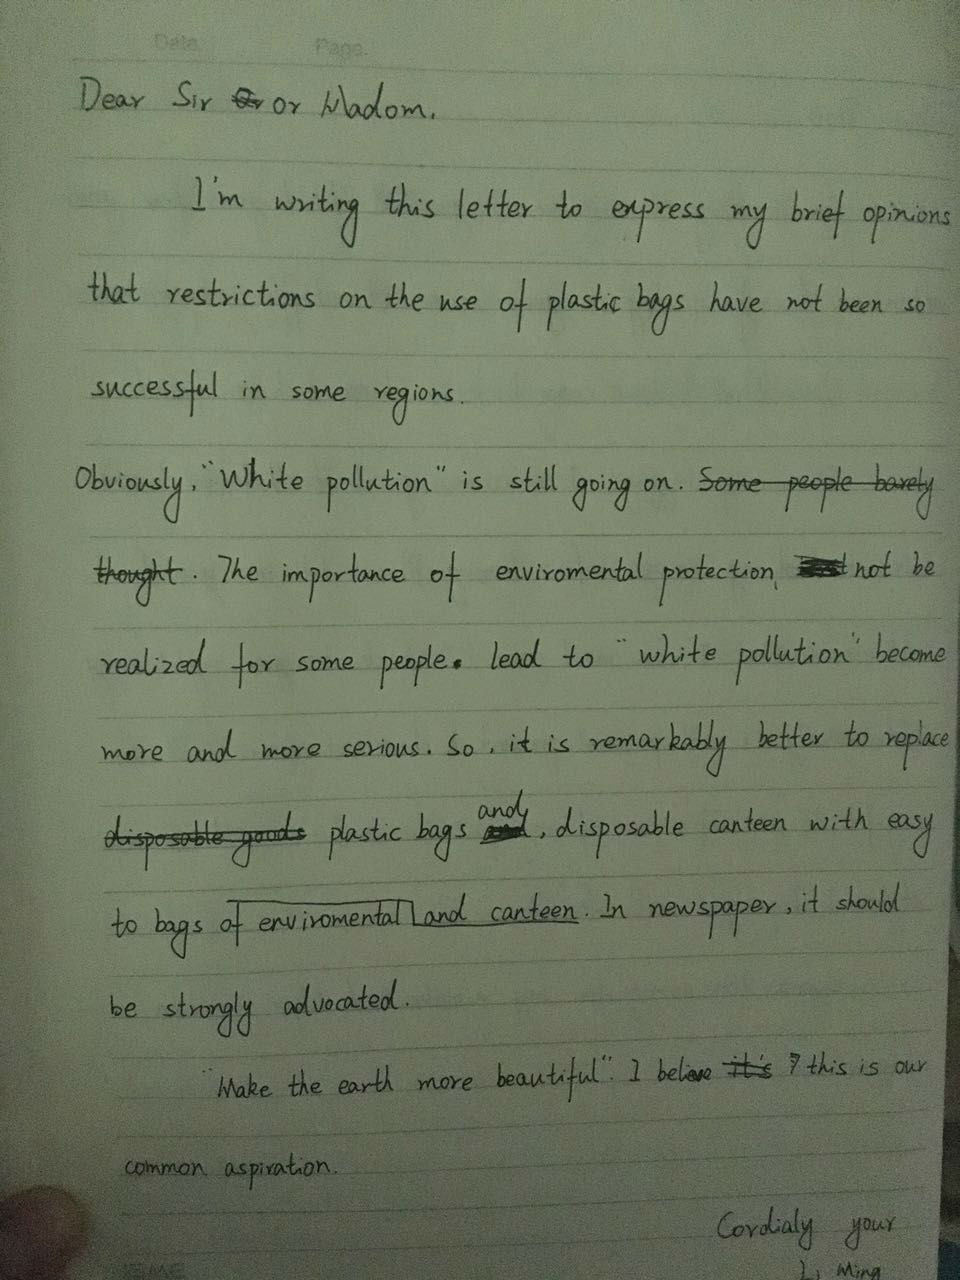 Date. Page.
Dear Sir or Madom,
I'm writing this letter to express my brief opinions
that restrictions on the use of plastic bags have not been so
successful in some regions.
Obviously, "White pollution" is still going on. Some people barely
thought. The importance of enviromental protection, not be
realized for some people. lead to "white pollution" become
more and more serious. So, it is remarkably better to replace
disposable goods plastic bags and, disposable canteen with easy
to bags of enviromental and canteen. In newspaper, it should
be strongly advocated.
"Make the earth more beautiful". I believe it's this is our
common aspiration.
Cordialy your
Li Ming